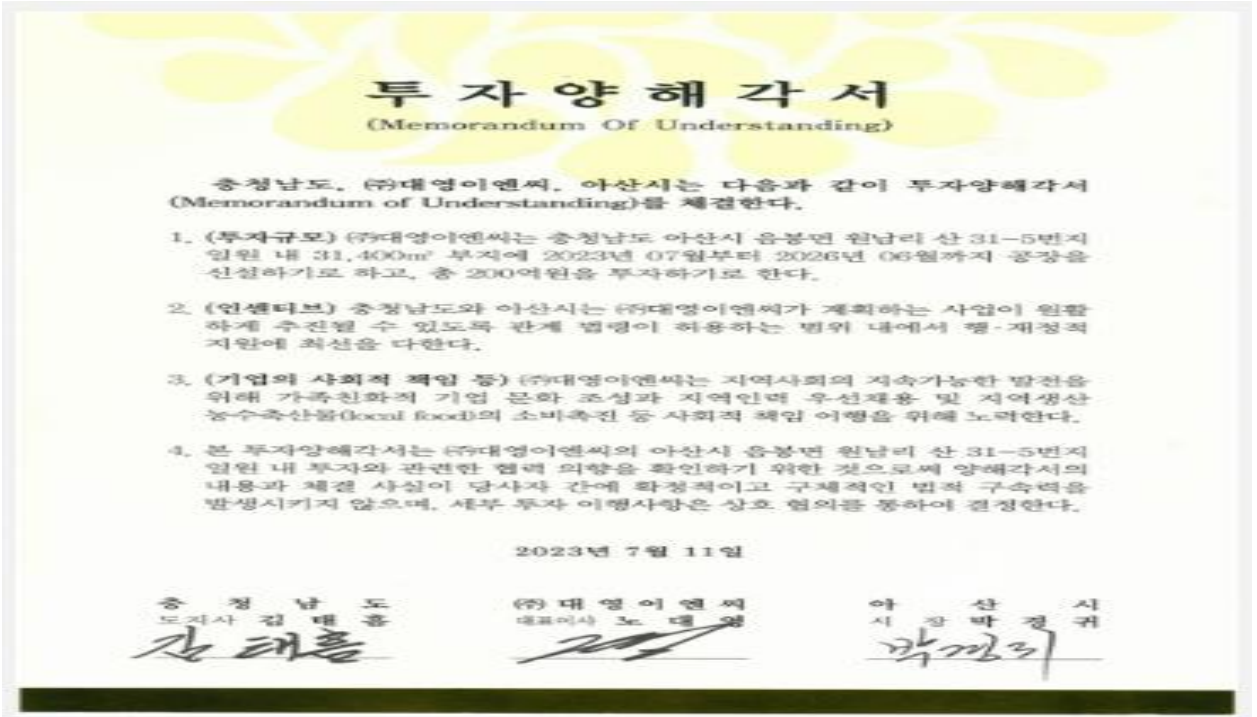 투자양해각서
(Memorandum Of Understanding)
충청남도, ㈜대영이엔씨, 아산시는 다음과 같이 투자양해각서
(Memorandum of Understanding)를 체결한다.
1. (투자규모) ㈜대영이엔씨는 충청남도 아산시 음봉면 원남리 산 31-5번지
일원 내 31,400㎡ 부지에 2023년 07월부터 2026년 06월까지 공장을
신설하기로 하고, 총 200억원을 투자하기로 한다.
2. (인센티브) 충청남도와 아산시는 ㈜대영이엔씨가 계획하는 사업이 원활
하게 추진될 수 있도록 관계 법령이 허용하는 범위 내에서 행·재정적
지원에 최선을 다한다.
3. (기업의 사회적 책임 등) ㈜대영이엔씨는 지역사회의 지속가능한 발전을
위해 가족친화적 기업 문화 조성과 지역인력 우선채용 및 지역생산
농수축산물(local food)의 소비촉진 등 사회적 책임 이행을 위해 노력한다.
4. 본 투자양해각서는 ㈜대영이엔씨의 아산시 음봉면 원남리 산 31-5번지
일원 내 투자와 관련한 협력 의향을 확인하기 위한 것으로써 양해각서의
내용과 체결 사실이 당사자 간에 확정적이고 구체적인 법적 구속력을
발생시키지 않으며, 세부 투자 이행사항은 상호 협의를 통하여 결정한다.
2023년 7월 11일
충청남도 ㈜대영이엔씨 아산시
도지사 김태흠 대표이사 노대영 시장 박경귀
김태흠 박경귀